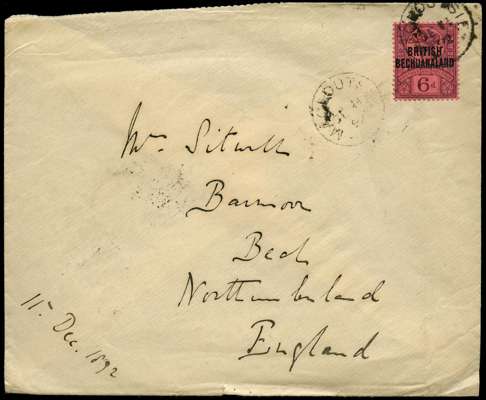 BRITISH
BECHUANALAND
6d
Mrs Sitwell
Barmoor
Beal
Northumberland
England
11 Dec. 1892